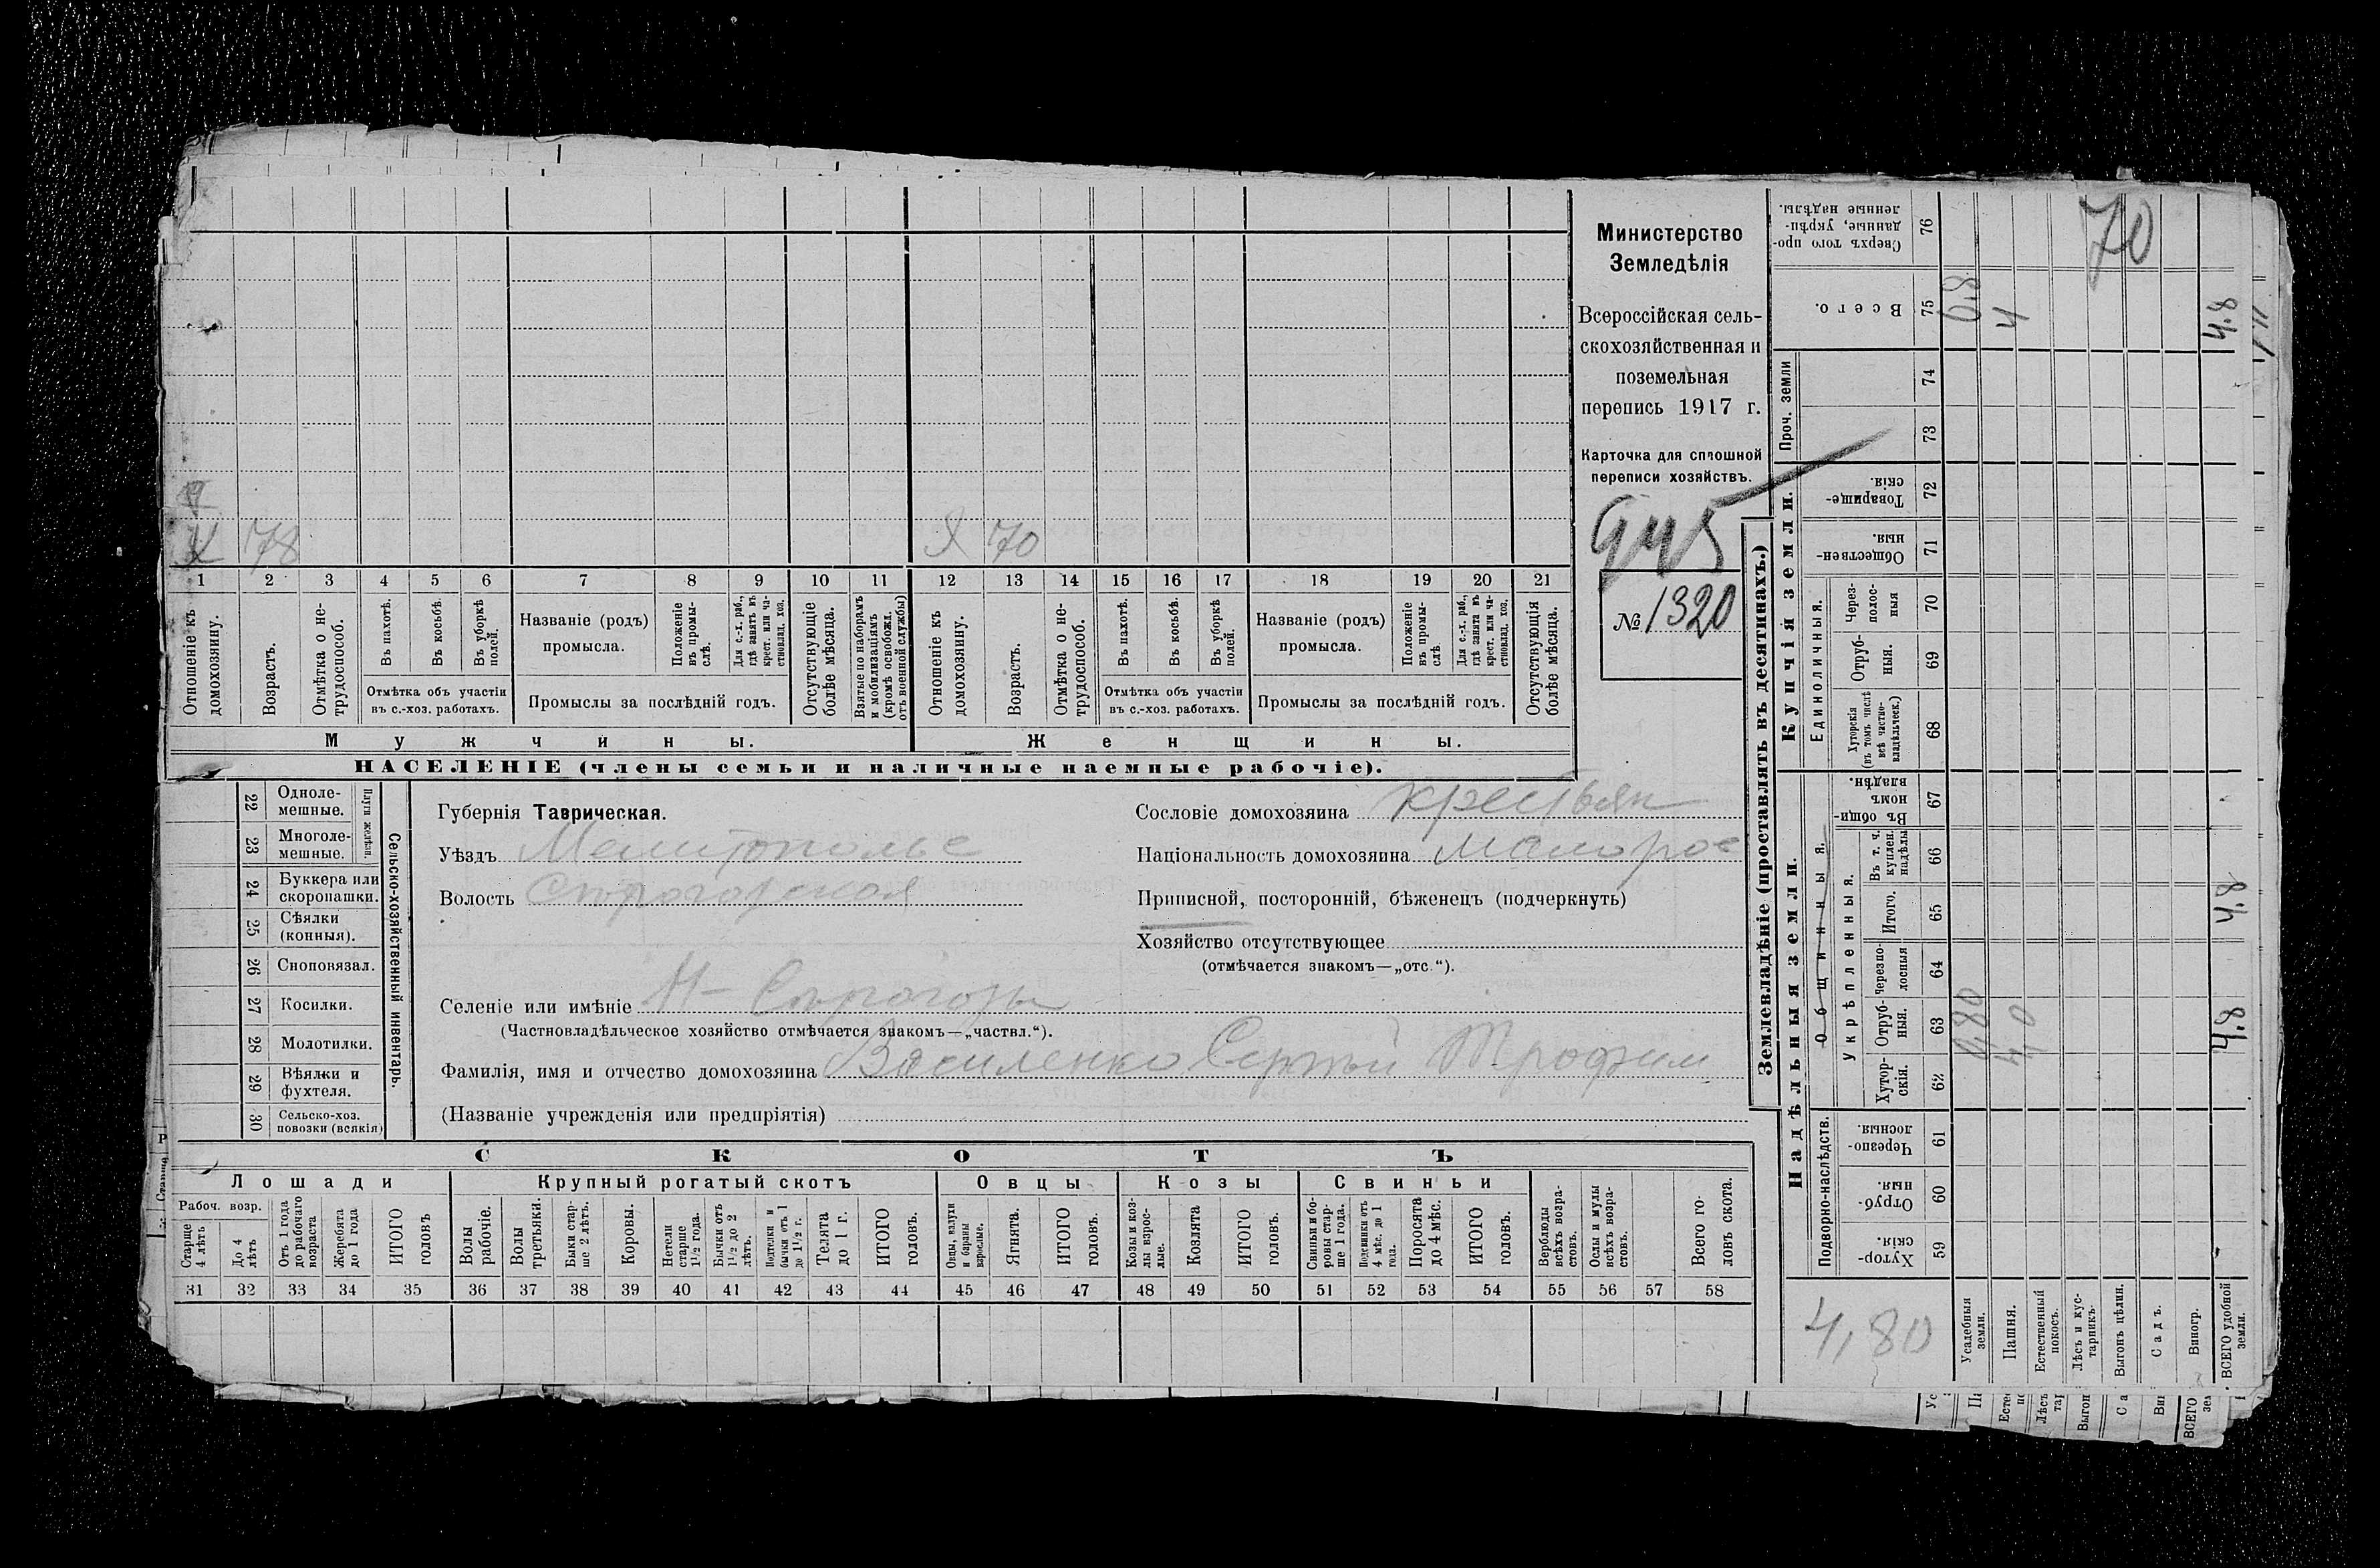 Министерство
Земледѣлія
Всероссійская сель-
скохозяйственная и
поземельная
перепись 1917 г.
Карточка для сплошной
переписи хозяйствъ.
945
№ 1320
Х 78
70
1 2 3 4 5 6 7 8 9 10 11 12 13 14 15 16 17 18 19 20 21
Отношеніе къ домохозяину.
Возрастъ.
Отмѣтка о не-трудоспособ.
Въ пахотѣ.
Въ косьбѣ.
Въ уборкѣ полей.
Отмѣтка объ участіи
въ с.-хоз. работахъ.
Названіе (родъ)
промысла.
Положеніе въ промы-слѣ.
Для с.-х. раб., гдѣ занятъ въ крест. или ча-стновлад. хоз.
Промыслы за послѣдній годъ.
Отсутствующіе болѣе мѣсяца.
Взятые по наборамъ и мобилизаціямъ (кромѣ освобожд. отъ военной службы)
Отношеніе къ домохозяину.
Возрастъ.
Отмѣтка о не-трудоспособ.
Въ пахотѣ.
Въ косьбѣ.
Въ уборкѣ полей.
Отмѣтка объ участіи
въ с.-хоз. работахъ.
Названіе (родъ)
промысла.
Положеніе въ промы-слѣ.
Для с.-х. раб., гдѣ занята въ крест. или ча-стновлад. хоз.
Промыслы за послѣдній годъ.
Отсутствующія болѣе мѣсяца.
Мужчины.
Женщины.
НАСЕЛЕНІЕ (члены семьи и наличные наемные рабочіе).
22 Одноле-мешные.
23 Многоле-мешные.
Плуги желѣзн.
24 Буккера или скоропашки.
25 Сѣялки (конныя).
26 Сноповязал.
27 Косилки.
28 Молотилки.
29 Вѣялки и фухтеля.
30 Сельско-хоз. повозки (всякія)
Сельско-хозяйственный инвентарь.
Губернія Таврическая.
Уѣздъ Мелитопольс
Волость Сѣрогозская
Сословіе домохозяина крестьян
Національность домохозяина Малорос
Приписной, посторонній, бѣженецъ (подчеркнуть)
Хозяйство отсутствующее
(отмѣчается знакомъ—„отс.“).
Селеніе или имѣніе Н-Сѣрогозы
(Частновладѣльческое хозяйство отмѣчается знакомъ—„частвл.“).
Фамилія, имя и отчество домохозяина Василенко Сергѣй Трофим
(Названіе учрежденія или предпріятія)
СКОТЪ
Лошади
Крупный рогатый скотъ
Овцы
Козы
Свиньи
Рабоч. возр.
Старше 4 лѣтъ
До 4 лѣтъ
Отъ 1 года до рабочаго возраста
Жеребята до 1 года
ИТОГО головъ
Волы рабочіе.
Волы третьяки.
Быки стар-ше 2 лѣтъ.
Коровы.
Нетели старше 1½ года.
Бычки отъ 1½ до 2 лѣтъ.
Подтелки и бычки отъ 1 до 1½ г.
Телята до 1 г.
ИТОГО головъ.
Овцы, валухи и бараны взрослые.
Ягнята.
ИТОГО головъ.
Козы и коз-лы взрос-лые.
Козлята
ИТОГО головъ.
Свиньи и бо-ровы стар-ше 1 года.
Подсвинки отъ 4 мѣс. до 1 года.
Поросята до 4 мѣс.
ИТОГО головъ.
Верблюды всѣхъ возра-стовъ.
Ослы и мулы всѣхъ возра-стовъ.
Всего го-ловъ скота.
31 32 33 34 35 36 37 38 39 40 41 42 43 44 45 46 47 48 49 50 51 52 53 54 55 56 57 58
Землевладѣніе (проставлять въ десятинахъ.)
Надѣльныя земли.
Купчія земли.
Проч. земли
Подворно-наслѣдств.
Общинныя.
Укрѣпленныя.
Единоличныя.
Хутор-скія. 59
Отруб-ныя. 60
Черезпо-лосныя 61
Хутор-скія. 62
Отруб-ныя. 63
Черезпо-лосныя 64
Итого. 65
Въ т. ч. куплен. надѣлы 66
Въ общи-номъ владѣн. 67
Хуторскія (въ томъ числѣ всѣ частно-владѣльческ.) 68
Отруб-ныя. 69
Через-полос-ныя 70
Обществен-ныя. 71
Товарище-скія. 72
73
74
Всего. 75
Сверхъ того про-данные, укрѣп-ленные надѣлы. 76
Усадебныя земли. 0,80 0,8
Пашня. 4,0 4
Естественный покосъ.
Лѣсъ и кус-тарникъ.
Выгонъ цѣлин.
Садъ.
Виногр.
ВСЕГО удобной земли. 4,8 4,8 4,8
70
4,80